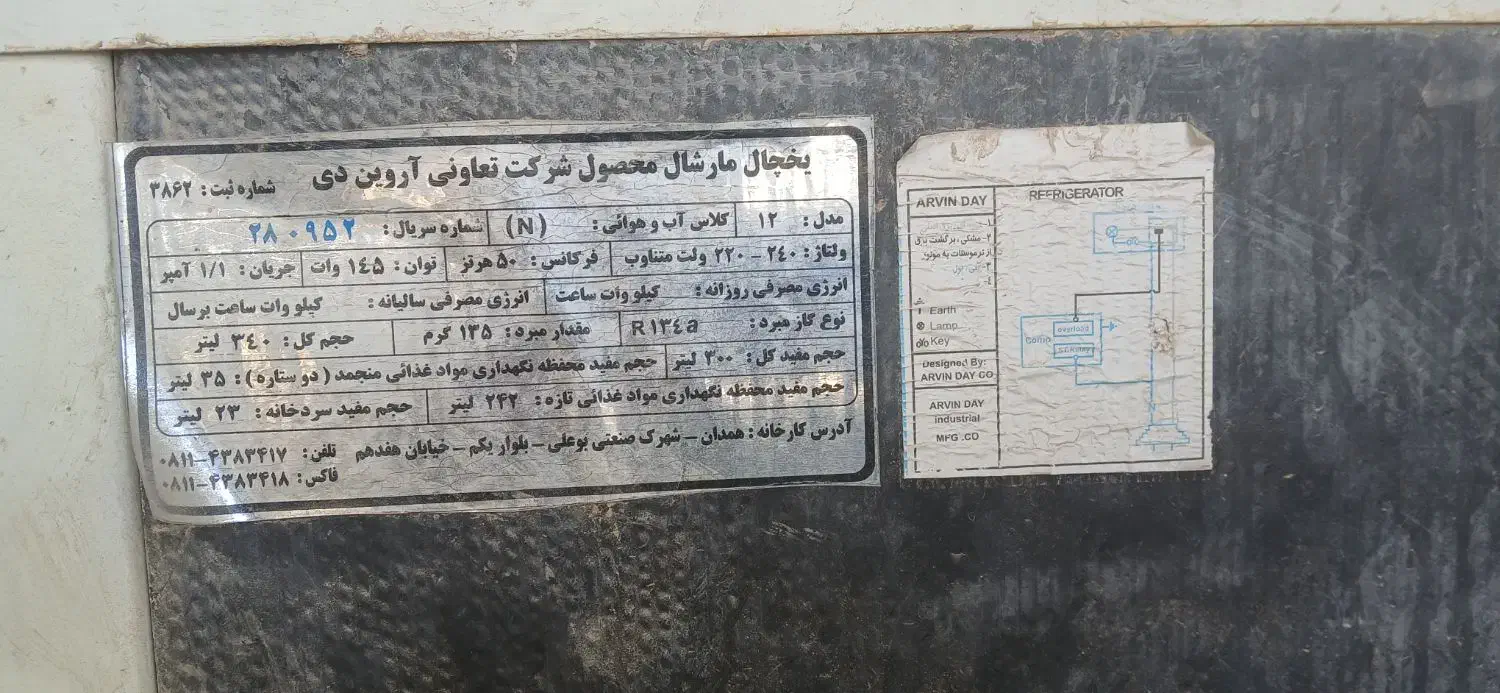 یخچال مارشال محصول شرکت تعاونی آروین دی شماره ثبت: ۳۸۶۲
مدل: ۱۲ کلاس آب و هوائی: (N) شماره سریال: ۲۸۰۹۵۲
ولتاژ: ۲۴۰ – ۲۲۰ ولت متناوب فرکانس: ۵۰ هرتز توان: ۱۴۵ وات جریان: ۱/۱ آمپر
انرژی مصرفی روزانه: کیلو وات ساعت انرژی مصرفی سالیانه: کیلو وات ساعت برسال
نوع گاز مبرد: R۱۳۴a مقدار مبرد: ۱۳۵ گرم حجم کل: ۳۴۰ لیتر
حجم مفید کل: ۳۰۰ لیتر حجم مفید محفظه نگهداری مواد غذائی منجمد (دو ستاره): ۳۵ لیتر
حجم مفید محفظه نگهداری مواد غذائی تازه: ۲۴۲ لیتر حجم مفید سردخانه: ۲۳ لیتر
آدرس کارخانه: همدان – شهرک صنعتی بوعلی – بلوار یکم – خیابان هفدهم تلفن: ۰۸۱۱-۴۳۸۳۴۱۷
فاکس: ۰۸۱۱-۴۳۸۳۴۱۸
ARVIN DAY
REFRIGERATOR
۱-
۲- مشکی، برگشت برق
از ترموستات به موتور
۳-
۴-
Earth
Lamp
Key
Designed By:
ARVIN DAY CO
ARVIN DAY
industrial
MFG.CO
overload
Comp